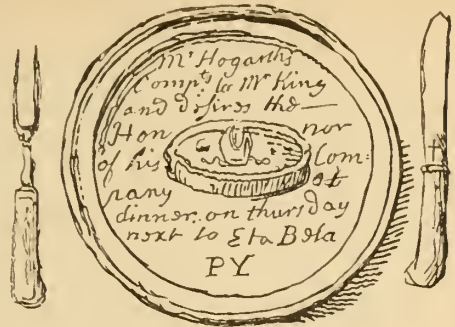 Mr Hogarth's
Compts to Mr King
and desires the —
Hon nor
of his Com:
pany at
dinner. on thursday
next to Eta Beta
PY